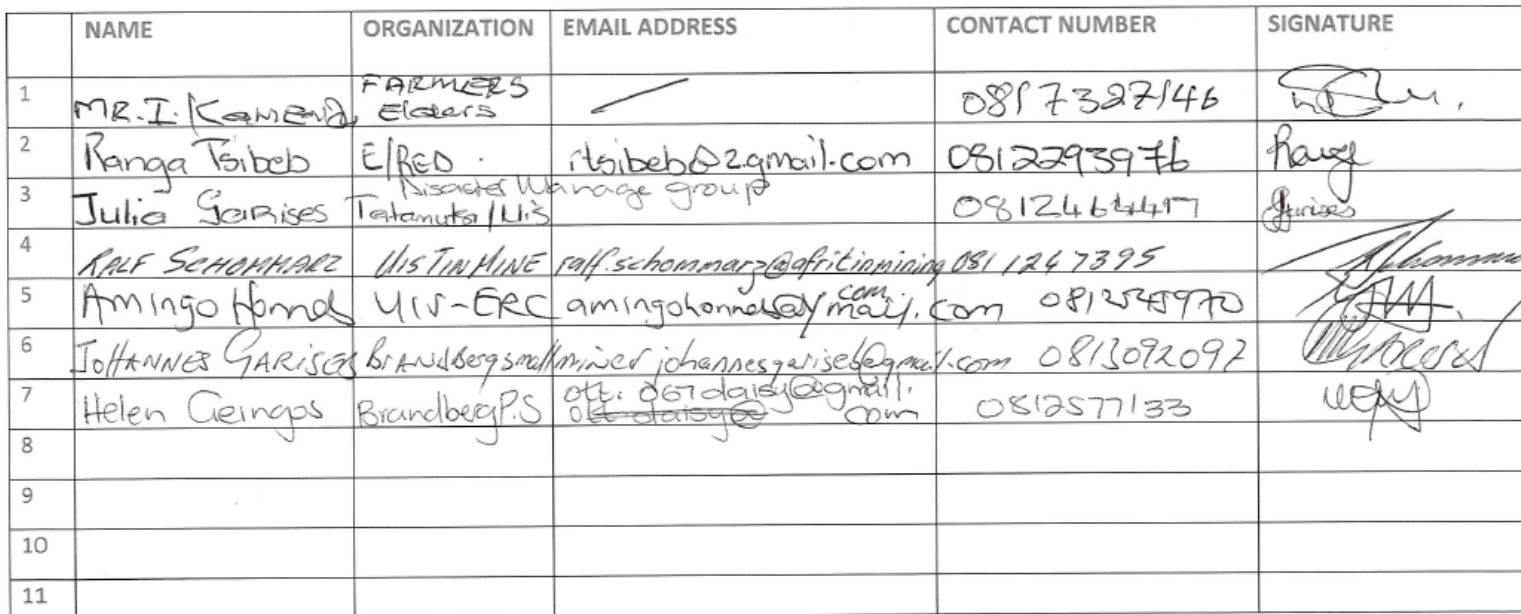 NAME ORGANIZATION EMAIL ADDRESS CONTACT NUMBER SIGNATURE
1 MR. I. FARMERS Elders 0817327146
2 Ranga Tsibeb E/RED. itsibeb@2gmail.com 0812293976
Disaster Manage group
3 Julia Garises /Uis Garises
4 RALF SCHOMMARZ UIS TIN MINE ralf.schommarz@afritinmining 081 1247395
com
5 Amingo UIV-ERC @ymail.com
6 JOHANNES GARISES Brandberg small miner johannesgariseb@gmail.com 0813092097
7 Helen Geingos Brandberg P.S ott.067daisy@gmail.
com 0812577133
8
9
10
11